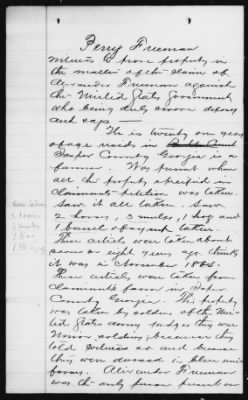 Perry Freeman
witness to prove property in
the matter of the claim of
Alexander Freeman against
the United States Government
who being duly sworn deposes
and says —
He is twenty one years
of age resides in
Jasper County Georgia is a
farmer. Was present when
all the property specified in
claimants petition was taken.
Saw it all taken. Saw
2 horses, 3 mules, 1 hog and
1 barrel of syrup taken.
These articles were taken about
seven or eight years ago thinks
it was in November 1864.
These articles were taken from
claimants farm in Jasper
County Georgia. The property
was taken by soldiers of the Uni-
ted States army judges they were
Union soldiers because they
told witness so and because
they were dressed in blue uni-
forms. Alexander Freeman
was the only person present on
Saw taken
2 horses
3 mules
1 Hog